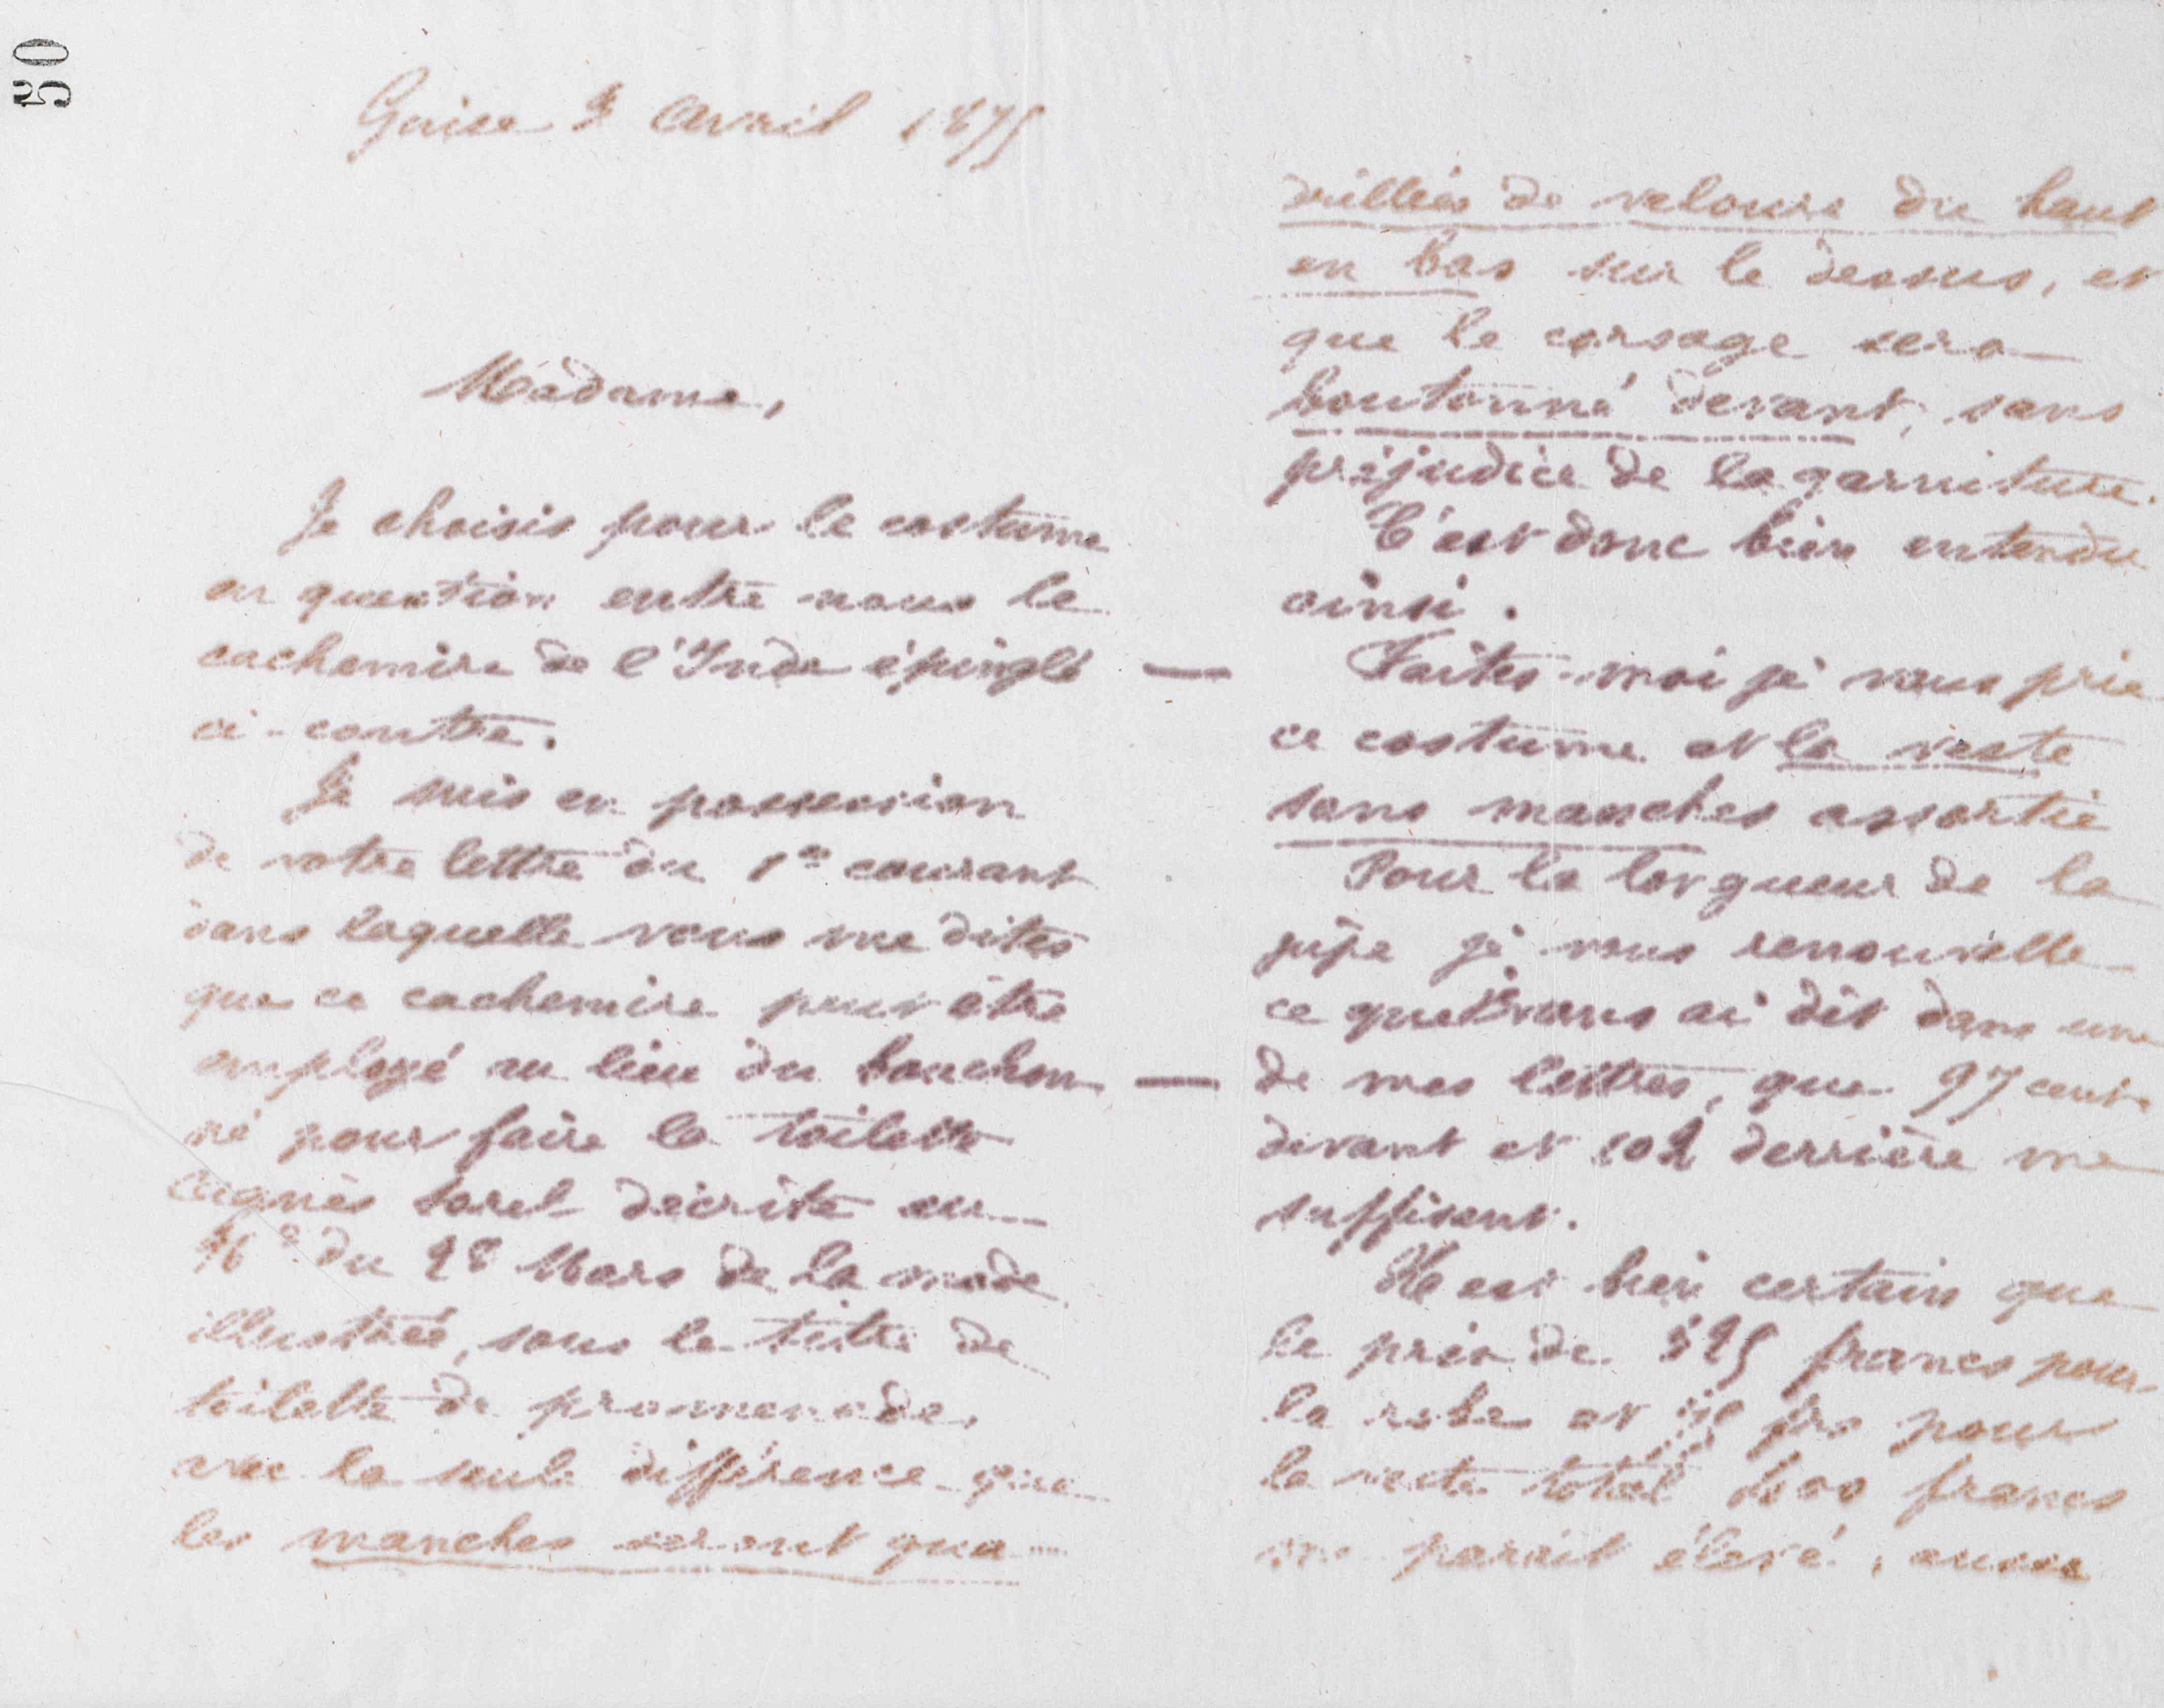 50
Guise 3 Avril 1875
Madame,
Je choisis pour le costume
en question entre nous le
cachemire de l'Inde épinglé
ci-contre.
Je suis en possession
de votre lettre du 1er courant
dans laquelle vous me dites
que ce cachemire peut être
employé au lieu du bouchon-
né pour faire la toilette
Agnès Sorel décrite au
No du 28 Mars de la mode
illustrée, sous le titre de
toilette de promenade,
avec la seule différence que
les manches seront qua-
drillées de velours du haut
en bas sur le dessus, et
que le corsage sera
boutonné devant, sans
préjudice de la garniture.
C'est donc bien entendu
ainsi.
— Faites-moi je vous prie
ce costume et la veste
sans manches assortie
Pour la longueur de la
jupe je vous renouvelle
ce que vous ai dit dans une
— de mes lettres, que 97 cent.
devant et 102 derrière me
suffisent.
Il est bien certain que
le prix de 325 francs pour
la robe et frs pour
la veste total francs
me parait élevé, aussi